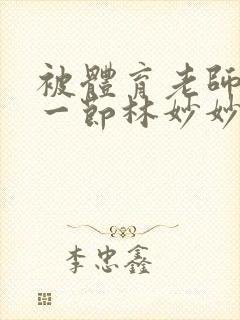 被體育老師
一節林妙妙
李忠鑫